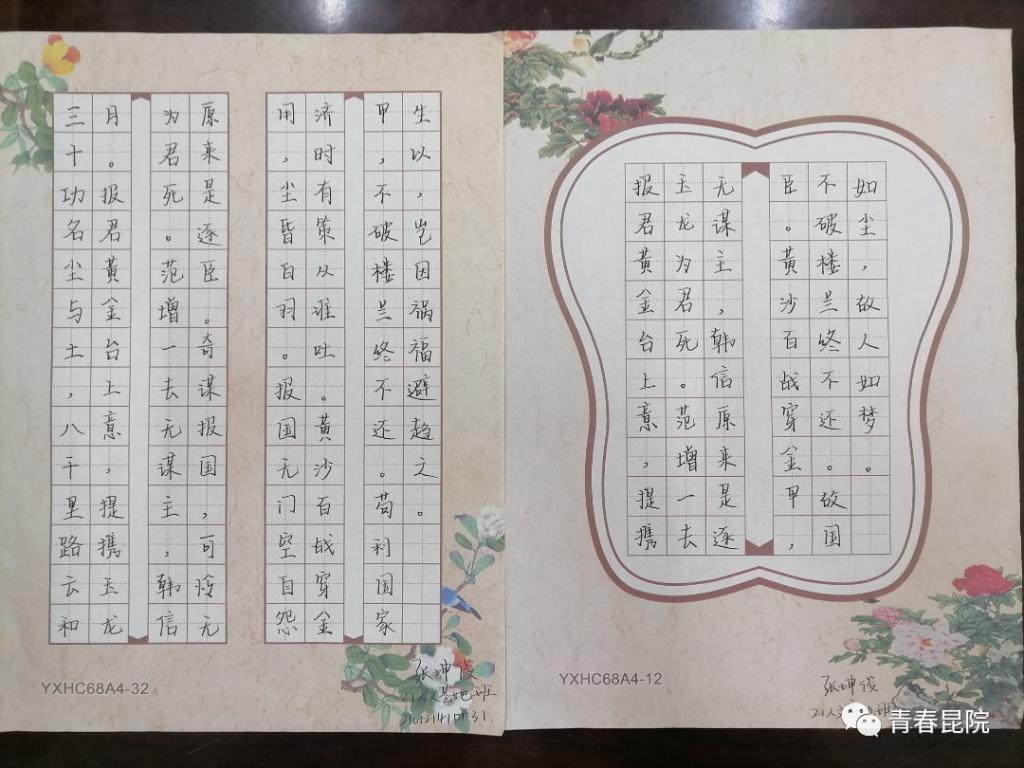 三十功名尘与土，八千里路云和
月。报君黄金台上意，提携玉龙
为君死。范增一去无谋主，韩信
原来是逐臣。奇谋报国，可怜无
用，尘昏白羽。报国无门空自怨
济时有策从谁吐。黄沙百战穿金
甲，不破楼兰终不还。苟利国家
生以，岂因祸福避趋之。
YXHC68A4-32
张坤
21人文基地班
报君黄金台上意，提携
玉龙为君死。范增一去
无谋主，韩信原来是逐
臣。黄沙百战穿金甲，
不破楼兰终不还。故国
如尘，故人如梦。
YXHC68A4-12
张坤
21人文
青春昆院